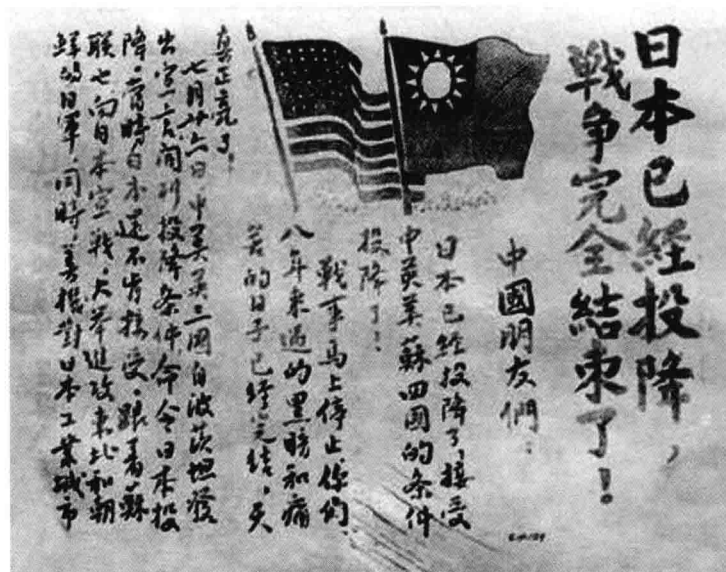 日本已経投降，
戦争完全結束了！
中國朋友們：
日本已經投降了，接受
中英美蘇四國的条件
投降了！
戰事馬上停止，你们
八年来過的黑暗和痛
苦的日子已經完结，天
真正亮了！
七月廿六日中美英三國自波茨坦發
出宣言，開列投降条件，命令日本投
降。當時日本還不肯接受。跟着，蘇
联也向日本宣戰，大举進攻東北和朝
鮮的日軍，同時，美機對日本工業城市